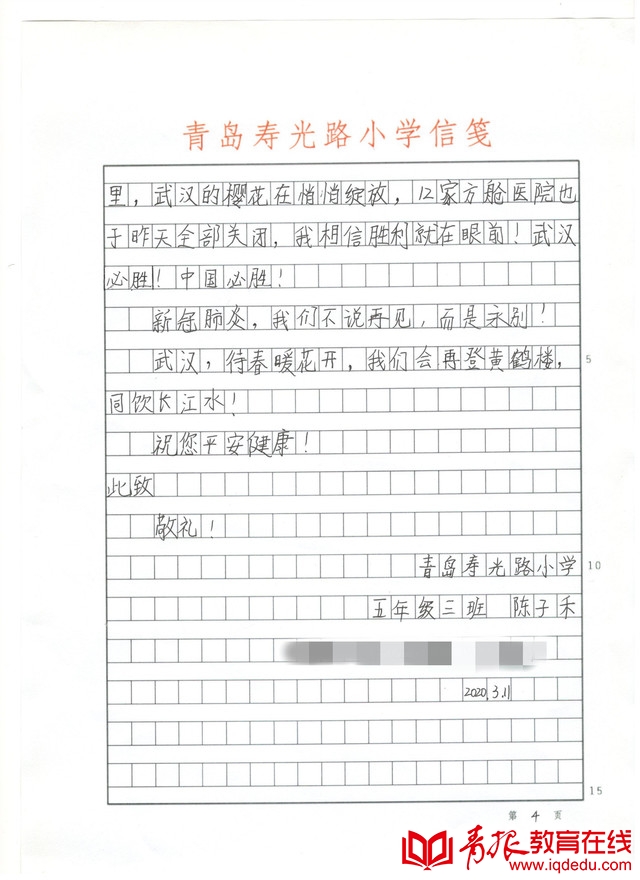 青岛寿光路小学信笺
里，武汉的樱花在悄悄绽放，12家方舱医院也
于昨天全部关闭，我相信胜利就在眼前！武汉
必胜！中国必胜！
新冠肺炎，我们不说再见，而是永别！
武汉，待春暖花开，我们会再登黄鹤楼，
5
同饮长江水！
祝您平安健康！
此致
敬礼！
青岛寿光路小学
10
五年级三班 陈子禾
2020.3.11
15
第 4 页
青报教育在线
www.iqdedu.com